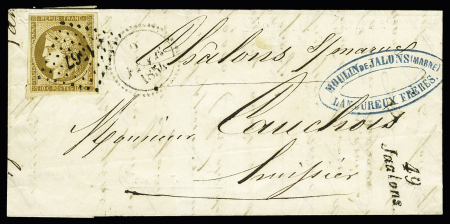 REPUB. FRANC.
Chalons s/marne
MOULIN DE JALONS (MARNE)
LAMOUREUX FRÈRES.
Monsieur Cauchois
huissier
49
Jaalons.